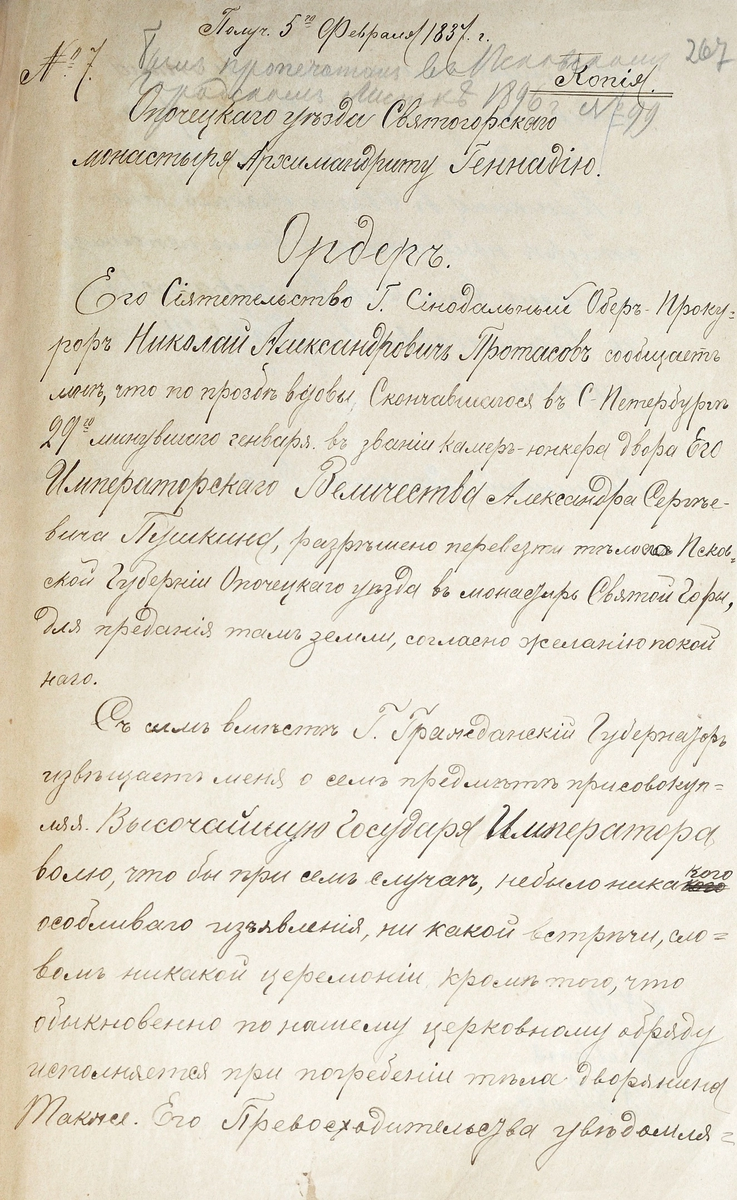 Получ. 5го Февраля 1837. г.
№ 7.
267
Былъ пропечатан въ Псковскомъ
Городскомъ Листкѣ 1896 г № 99
Копія.
Опочецкаго уѣзда Святогорскаго
монастыря Архимандриту Геннадію.
Ордеръ.
Его Сіятетельство Г. Сінодальный Оберъ-Проку-
роръ Николай Александровичъ Протасовъ сообщаетъ
мнѣ, что по прозбѣ вдовы, Скончавшагося въ С-Петербургѣ
29го минувшаго генваря. въ званіи камеръ-юнкера двора Его
Императорскаго Величества Александра Сергѣе-
вича Пушкина, разрѣшено перевезти тѣло его Псков-
ской Губерніи Опочецкаго уѣзда въ монастырь Святой Горы,
для преданія тамъ земли, согласно желанію покой
наго.
Съ симъ вмѣстѣ Г. Гражданскій Губернаторъ
извѣщаетъ меня о семъ предмѣтѣ присовокуп=
ляя. Высочайшую Государя Императора
волю, что бы при семъ случаѣ, небыло никакого
особливаго изъявленія, ни какой встрѣчи, сло=
вомъ никакой церемоніи, кромѣ того, что
обыкновенно по нашему церковному обряду
исполняется при погребеніи тѣла дворянина
Также. Его Превосходительства увѣдомля=